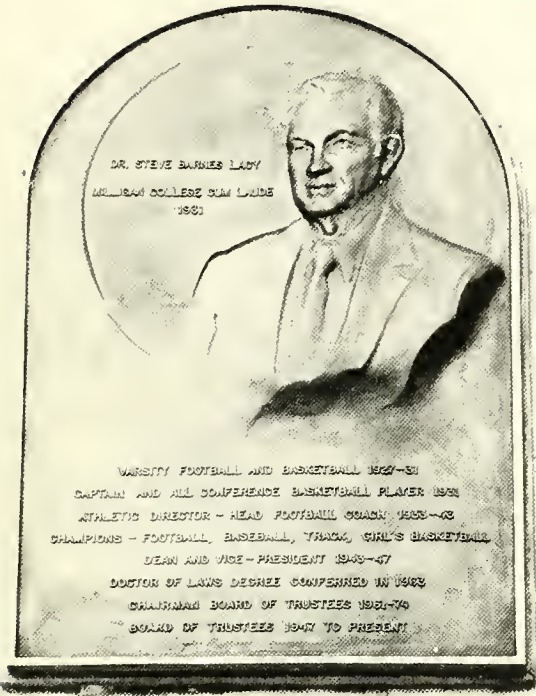 DR. STEVE BARNES LACY
MILLIGAN COLLEGE CUM LAUDE
1931
VARSITY FOOTBALL AND BASKETBALL 1927-31
CAPTAIN AND ALL CONFERENCE BASKETBALL PLAYER 1931
ATHLETIC DIRECTOR - HEAD FOOTBALL COACH 1933-43
CHAMPIONS - FOOTBALL, BASEBALL, TRACK, GIRL'S BASKETBALL
DEAN AND VICE-PRESIDENT 1943-47
DOCTOR OF LAWS DEGREE CONFERRED IN 1963
CHAIRMAN BOARD OF TRUSTEES 1961-74
BOARD OF TRUSTEES 1947 TO PRESENT